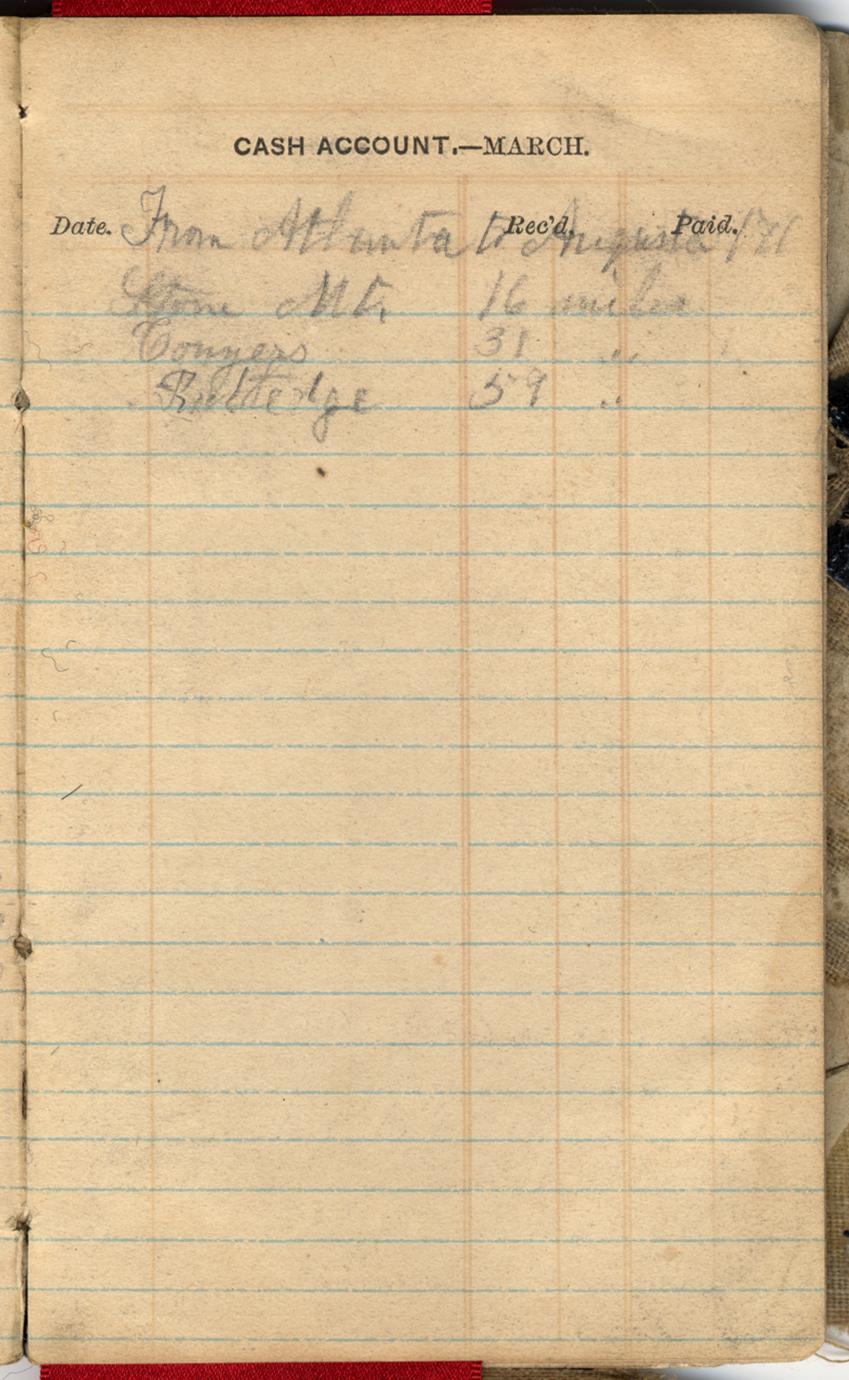 CASH ACCOUNT.—MARCH.
Date. Rec'd. Paid.
From Atlanta to Augusta 171
Stone Mt. 16 miles
Conyers 31 "
Rutledge 59 "